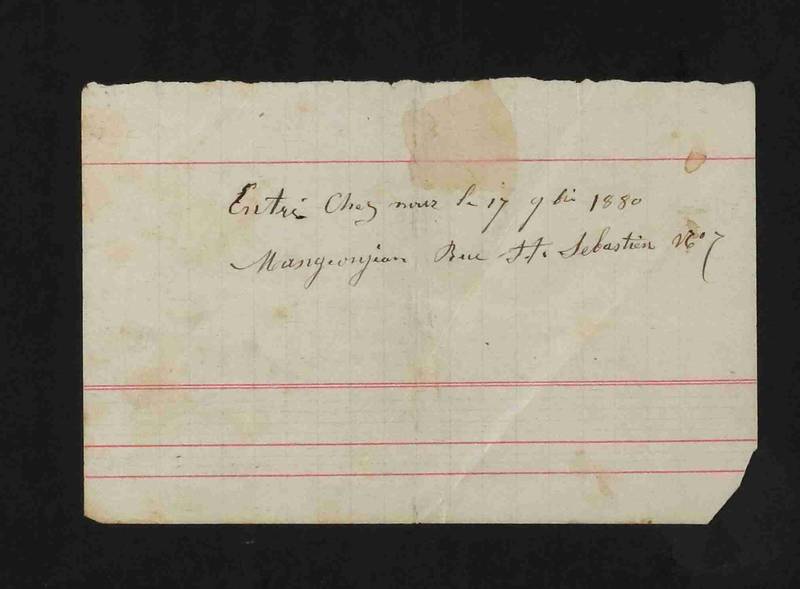 Entré Chez nous le 17 9bre 1880
Mangeonjean Rue St. Sebastien No 7